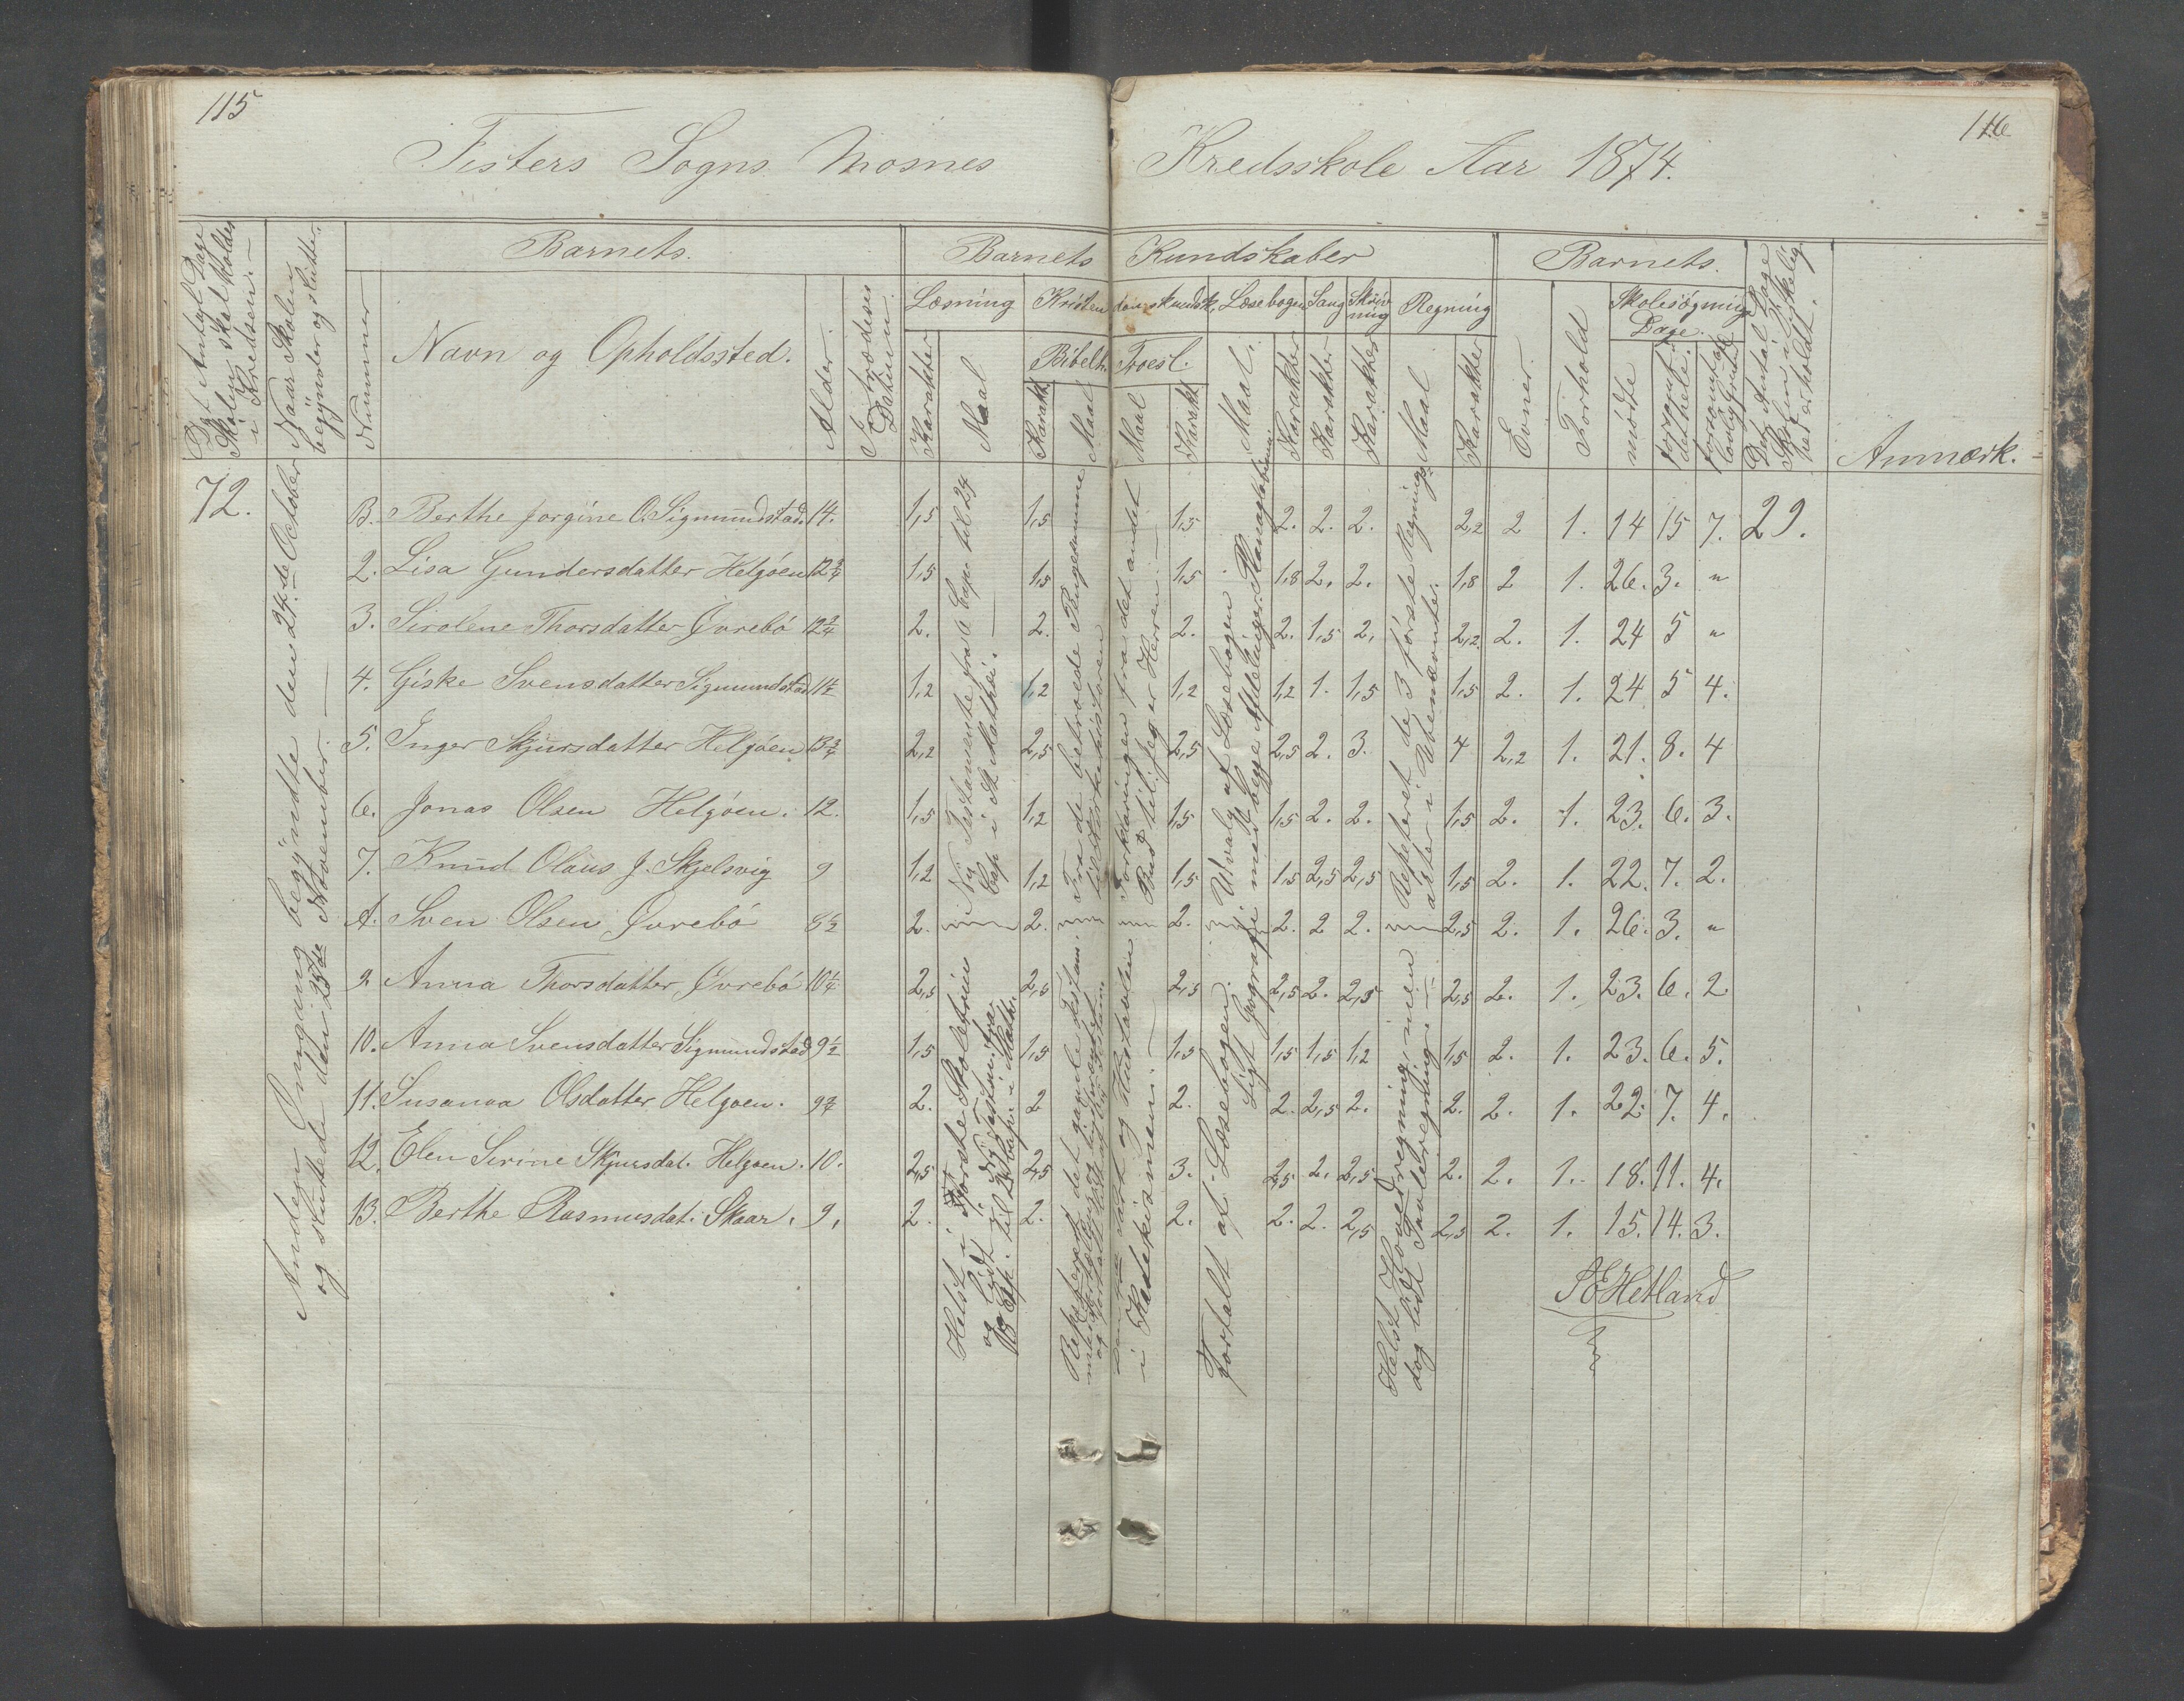 115
116
Fisters Sogns Mosnes Kredsskole Aar 1874.
Det Antal Dage Skolen skal holdes i Kredsen.
Naar Skolen begynder og slutter.
Barnets.
Nummer
Navn og Opholdssted.
Alder.
Indtrædelses Datum.
Barnets Kundskaber
Læsning
Karakter
Maal
Kristendomskundsk.
Bibelh.
Karakt.
Maal
Troesl.
Maal
Karakt.
Læsebogen
Maal.
Karakter
Sang
Karakter
Skrivning
Karakter
Regning
Maal
Karakter
Barnets.
Evner
Forhold
Skolesøgning Dage.
mødte
forsømt i det hele.
forsømt af lovlig Grund
Det Antal Dage Skolen i Virkelighed er holdt.
Anmærk.
72.
Anden Omgang begyndte den 24de October
og sluttede den 25de November.
B. Berthe Jorgine O. Sigmundstad. 14. 1,5 1,5 1,5 2. 2. 2. 2,2 2 1. 14 15 7. 29.
2. Lisa Gundersdatter Helgøen 12 3/4 1,5 1,5 1,5 1,8 2. 2. 1,8 2 1. 26. 3. "
3. Sirolene Thorsdatter Øvrebø 12 3/4 2. 2. 2. 2. 1,5 2. 2,2 2. 1. 24 5 "
4. Giske Svensdatter Sigmundstad 11 1/2 1,2 1,2 1,2 1,2 1. 1,5 1,5 2. 1. 24 5 4.
5. Inger Skjursdatter Helgøen 13 3/4 2,2 2,5 2,5 2,5 2. 3. 4 2,2 1. 21. 8. 4
6. Jonas Olsen Helgøen. 12. 1,5 1,2 1,5 1,5 2. 2. 1,5 2. 1. 23. 6. 3.
7. Knud Olaus J. Skjelsvig 9 1,2 1,2 1,5 1,5 2,5 2,5 1,5 2. 1. 22. 7. 2.
A. Sven Olsen Øvrebø 8 1/2 2. 2. 2. 2. 2 2. 2,5 2. 1. 26. 3. "
9 Anna Thorsdatter Øvrebø 10 1/4 2,5 2,5 2,5 2,5 2. 2,5 2,5 2. 1. 23. 6. 2
10. Anna Svensdatter Sigmundstad 9 1/2 1,5 1,5 1,5 1,5 1,5 1,2 1,5 2. 1. 23. 6. 5.
11. Susanna Olsdatter Helgøen. 9 3/4 2. 2 2. 2. 2,5 2. 2. 2. 1. 22. 7. 4.
12. Elen Serine Skjursdat. Helgøen. 10. 2,5 2,5 3. 2,5 2. 2,5. 2. 2. 1. 18. 11. 4.
13. Berthe Rasmusdat. Skaar. 9. 2. 2. 2. 2. 2. 2,5 2,5 2. 1. 15. 14. 3.
i Nye Testamente fra 6 Cap. til 24
Cap i St. Mathæi.
Fra de betroede Pengesumme
Forklaringen fra det andet
Bud til: Jeg er Herren
Udvalg af Læsebogen
med begge Afdelinger
Repeteret de 3 første Regnings-
arter i Ubenævnte.
Helst i Første
og lidt i Nye Testam. fra
Cap. til Cap. i Math.
Repeteret det gamle Testam.
i Katekismen.
Fortalt af Læsebogen.
lidt Geografi
Helst Hovedregning, men
dog lidt Tavleregning
SEHetland